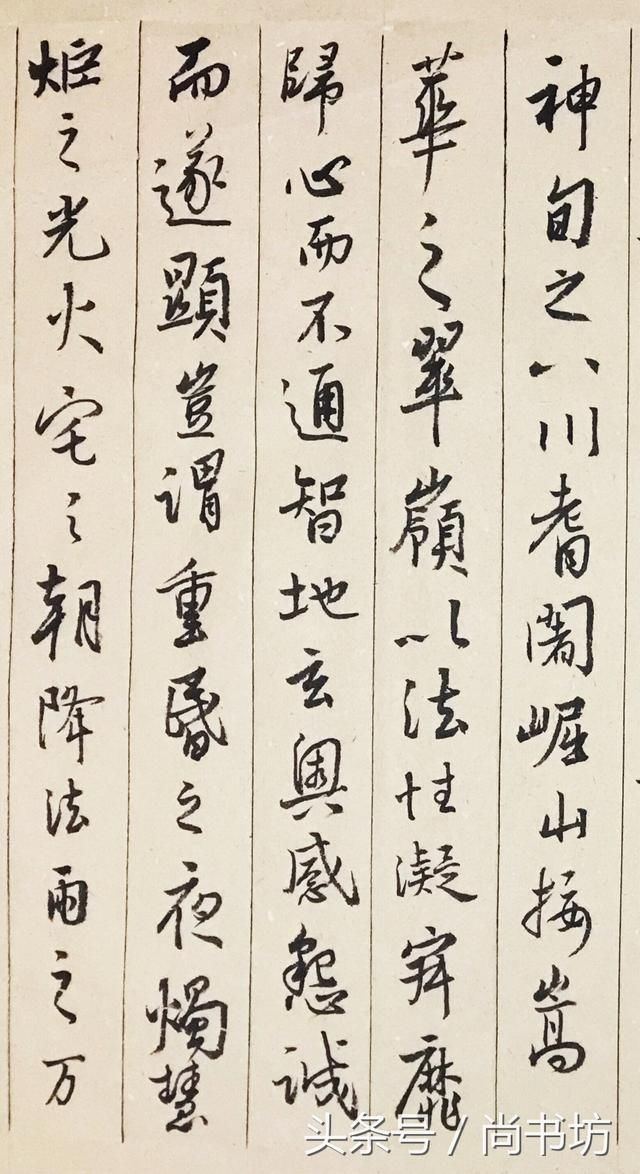 神甸之八川耆闍崛山接嵩
華之翠嶺以法性凝寂靡
歸心而不通智地玄奥感懇誠
而遂顯豈謂重昏之夜燭慧
炬之光火宅之朝降法雨之万
头条号 / 尚书坊